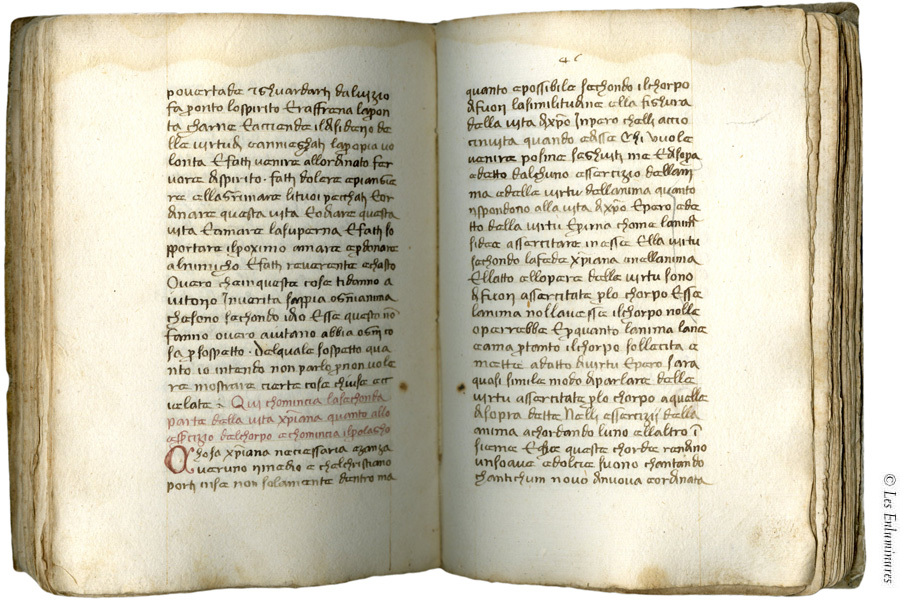 povertade & sghuardarti daluizio
fa ponto lospirito Et raffrena lapon
ta charne Et acciende ildisiderio de
lle virtudi Et annieghati lapropia vo
lonta Et fatti venire allordinato fer
vore dispirito . fatti dolere epiangie
re ellagrimare lituoi pecchati Et or
dinare questa vita Et odiare questa
vita Et amare lasuperna Et fatti so
pportare ilproximo amare eperdonare
alnimicho Et fatti reverente echasto
Overo cheinqueste cose tidanno a
iutorio Inverita sappia ogni anima
cheseno sechondo idio Esse questo no
fanno overo aiutano abbia ogni co
sa per sospetto . Delquale sospetto qua
nto io intendo non parlo per non vole
re mostrare cierte cose chiuse et
velate . Qui chomincia lasechonda
parte della vita xpiana quanto allo
esercizio delchorpo echomincia ilprolagho
Chosa xpiana neciessaria esanza
veruno rimedio e chelchristiano
porti inse non solamente dentro ma
46
quanto epossibile sechondo ilchorpo
difuori lasimilitudine ella fighura
della vita dixpo Inpero chelli accio
cinvita quando edisse Chi vuole
venire posme seghuiti me Et disopra
edetto dalchuno essercizio dellani
ma edelle virtu dellanima quanto
rispondono alla vita dixpo Et pero ede
tto della virtu Et prima chome lanima
sidee assercitare inesse Ella virtu
sechondo lafede xpiana inellanima
Ellatto ellopere delle virtu sono
difuori assercitate plo chorpo Esse
lanima nollavesse ilchorpo nolle
operrebbe Et perquanto lanima lane
eama pertanto ilchorpo sollecita e
mette adatto divirtu Et pero sara
quasi simile modo diparlare delle
virtu assercitate plo chorpo aquelle
disopra dette Nelli essercizii della
anima achordando luno ellaltro i
sieme Et che queste chorde rendano
unsoave edolcie suono chantando
chantichum novo dinuova eordinata
© Les Enluminures